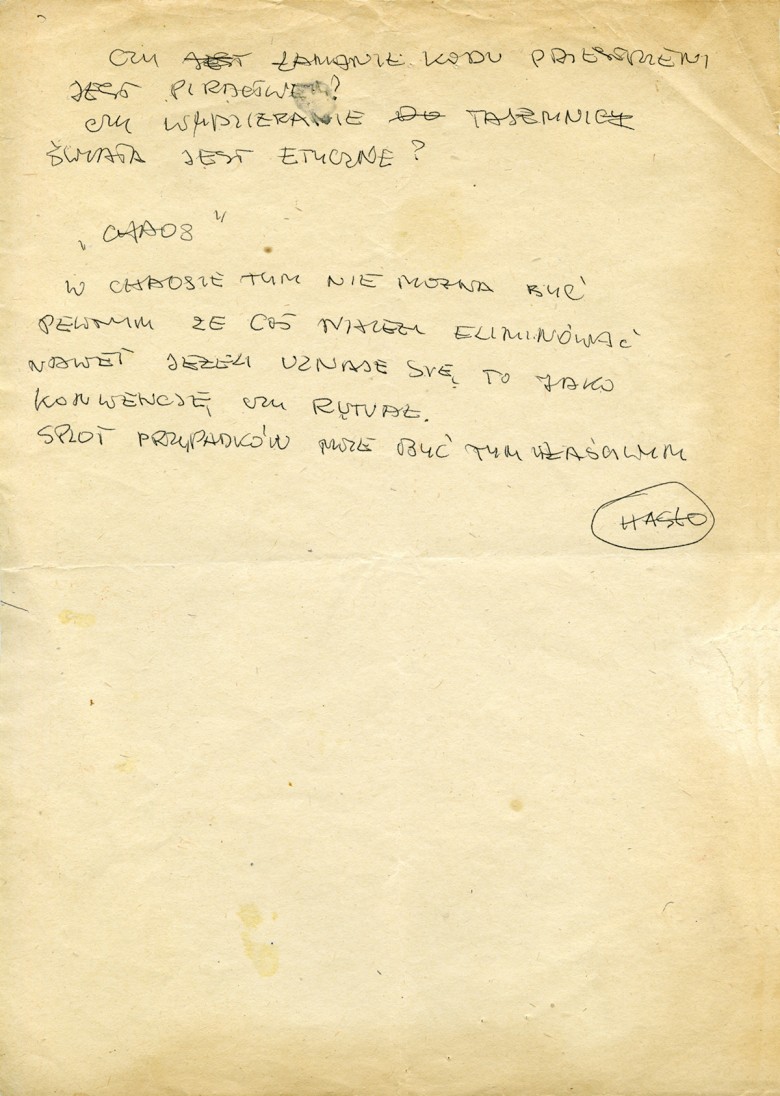 CZY ~~JEST~~ ŁAMANIE KODU PRZESTRZENI
JEST PIRACTWEM?
CZY WYDZIERANIE ~~DO~~ TAJEMNICY
ŚWIATA JEST ETYCZNE?
„CHAOS"
W CHAOSIE TYM NIE MOŻNA BYĆ
PEWNYM ŻE COŚ NALEŻY ELIMINOWAĆ
NAWET JEŻELI UZNAJE SIĘ TO JAKO
KONWENCJĘ CZY RYTUAŁ.
SPLOT PRZYPADKÓW MOŻE BYĆ TYM WŁAŚCIWYM
HASŁO